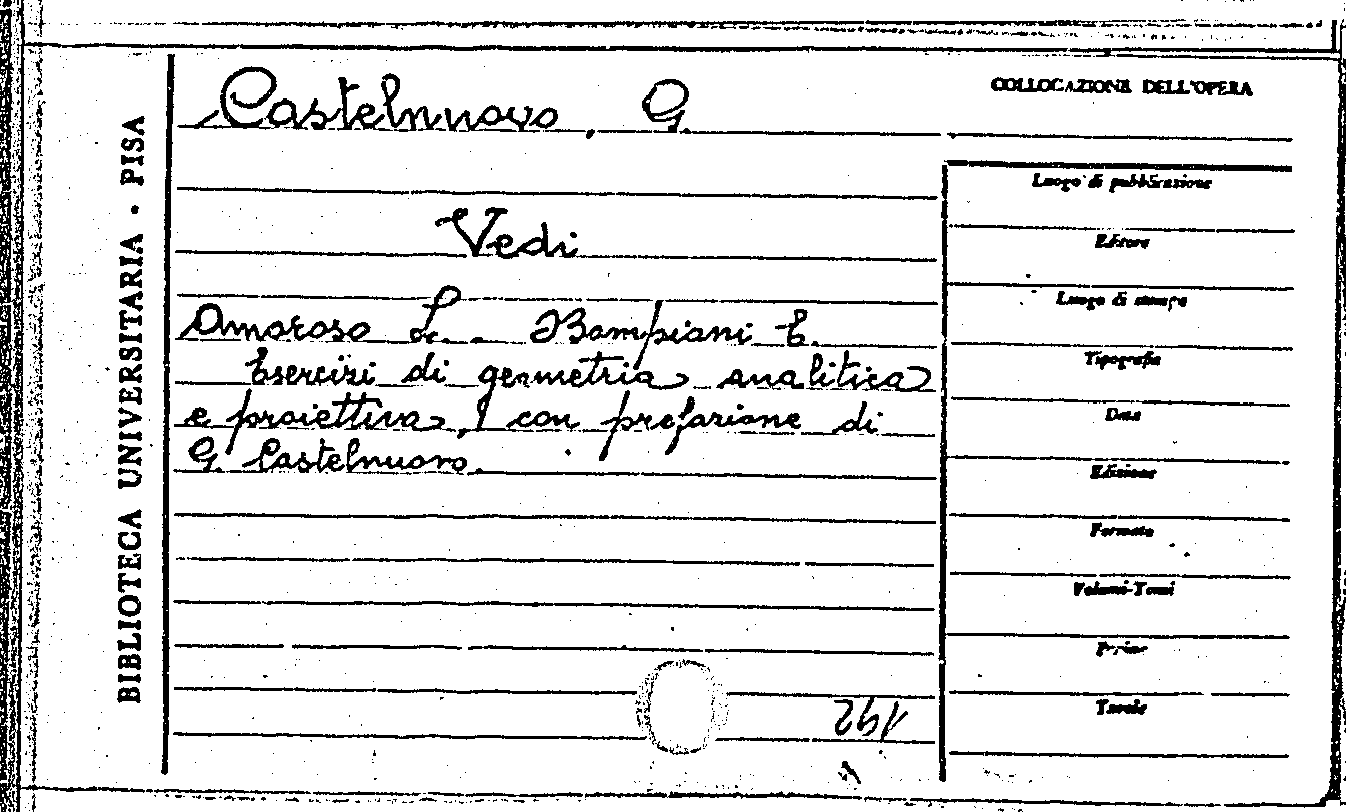 Castelnuovo, G.
Vedi
Amoroso L. - Bompiani E.
Esercizi di geometria analitica
e proiettiva, con prefazione di
G. Castelnuovo.
COLLOCAZIONE DELL'OPERA
Luogo di pubblicazione
Editore
Luogo di stampa
Tipografia
Data
Edizione
Formato
Volumi-Tomi
Pagine
Tavole
BIBLIOTECA UNIVERSITARIA · PISA